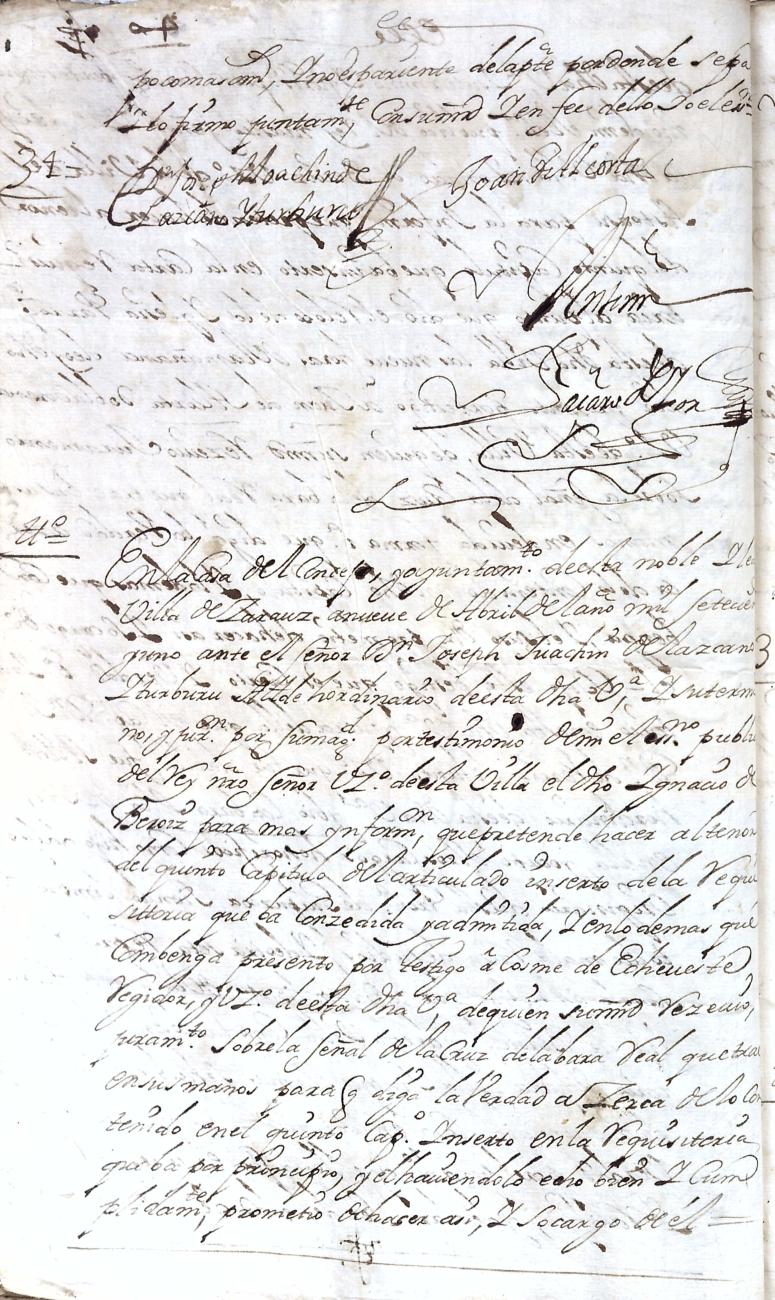 poco mas om.s, Y no es pariente de la p.te por donde se pa
Y lo firmo juntam.te, Con su md Y en fee dello Yo el es.no
34=
D.n Joseph Joachin de
Lazcano Yturburu
Joan de Alcorta
Ante mi
4º
En la Casa del Concejo, y ayuntam.to de esta noble Y le
Villa de Zarauz, a nueve de Abril del año mil setecien
y uno ante el señor D.n Joseph Juachin de Lazcano
Yturburu Alcalde hordinario de esta dha V.a, Y su termi
no, y jur.on por su mag.d por testimonio de mi el ess.no publi
del Rey nro Señor V.zº de esta Villa el dho Ygnacio de
Beroiz para mas ynform.on, que pretende hacer al tenor
del quinto Capitulo del articulado inserto de la Requi
sitoria que ba Conzedida y admitida, Y en lo demas que
Combenga presento por testigo a Cosme de Echeveste
Regidor, y V.zº de esta dha V.a, de quien su md Rezevio,
juram.to sobre la señal de la Cruz de la bara Real que trae
en sus manos para q diga la Verdad a Zerca de lo con
tenido en el quinto Cap.º Inserto en la Requisitoria
que ba por prinzipio, y el haviendolo echo bien Y Cum
plidam.te, prometio de hacer asi, Y so cargo de el =